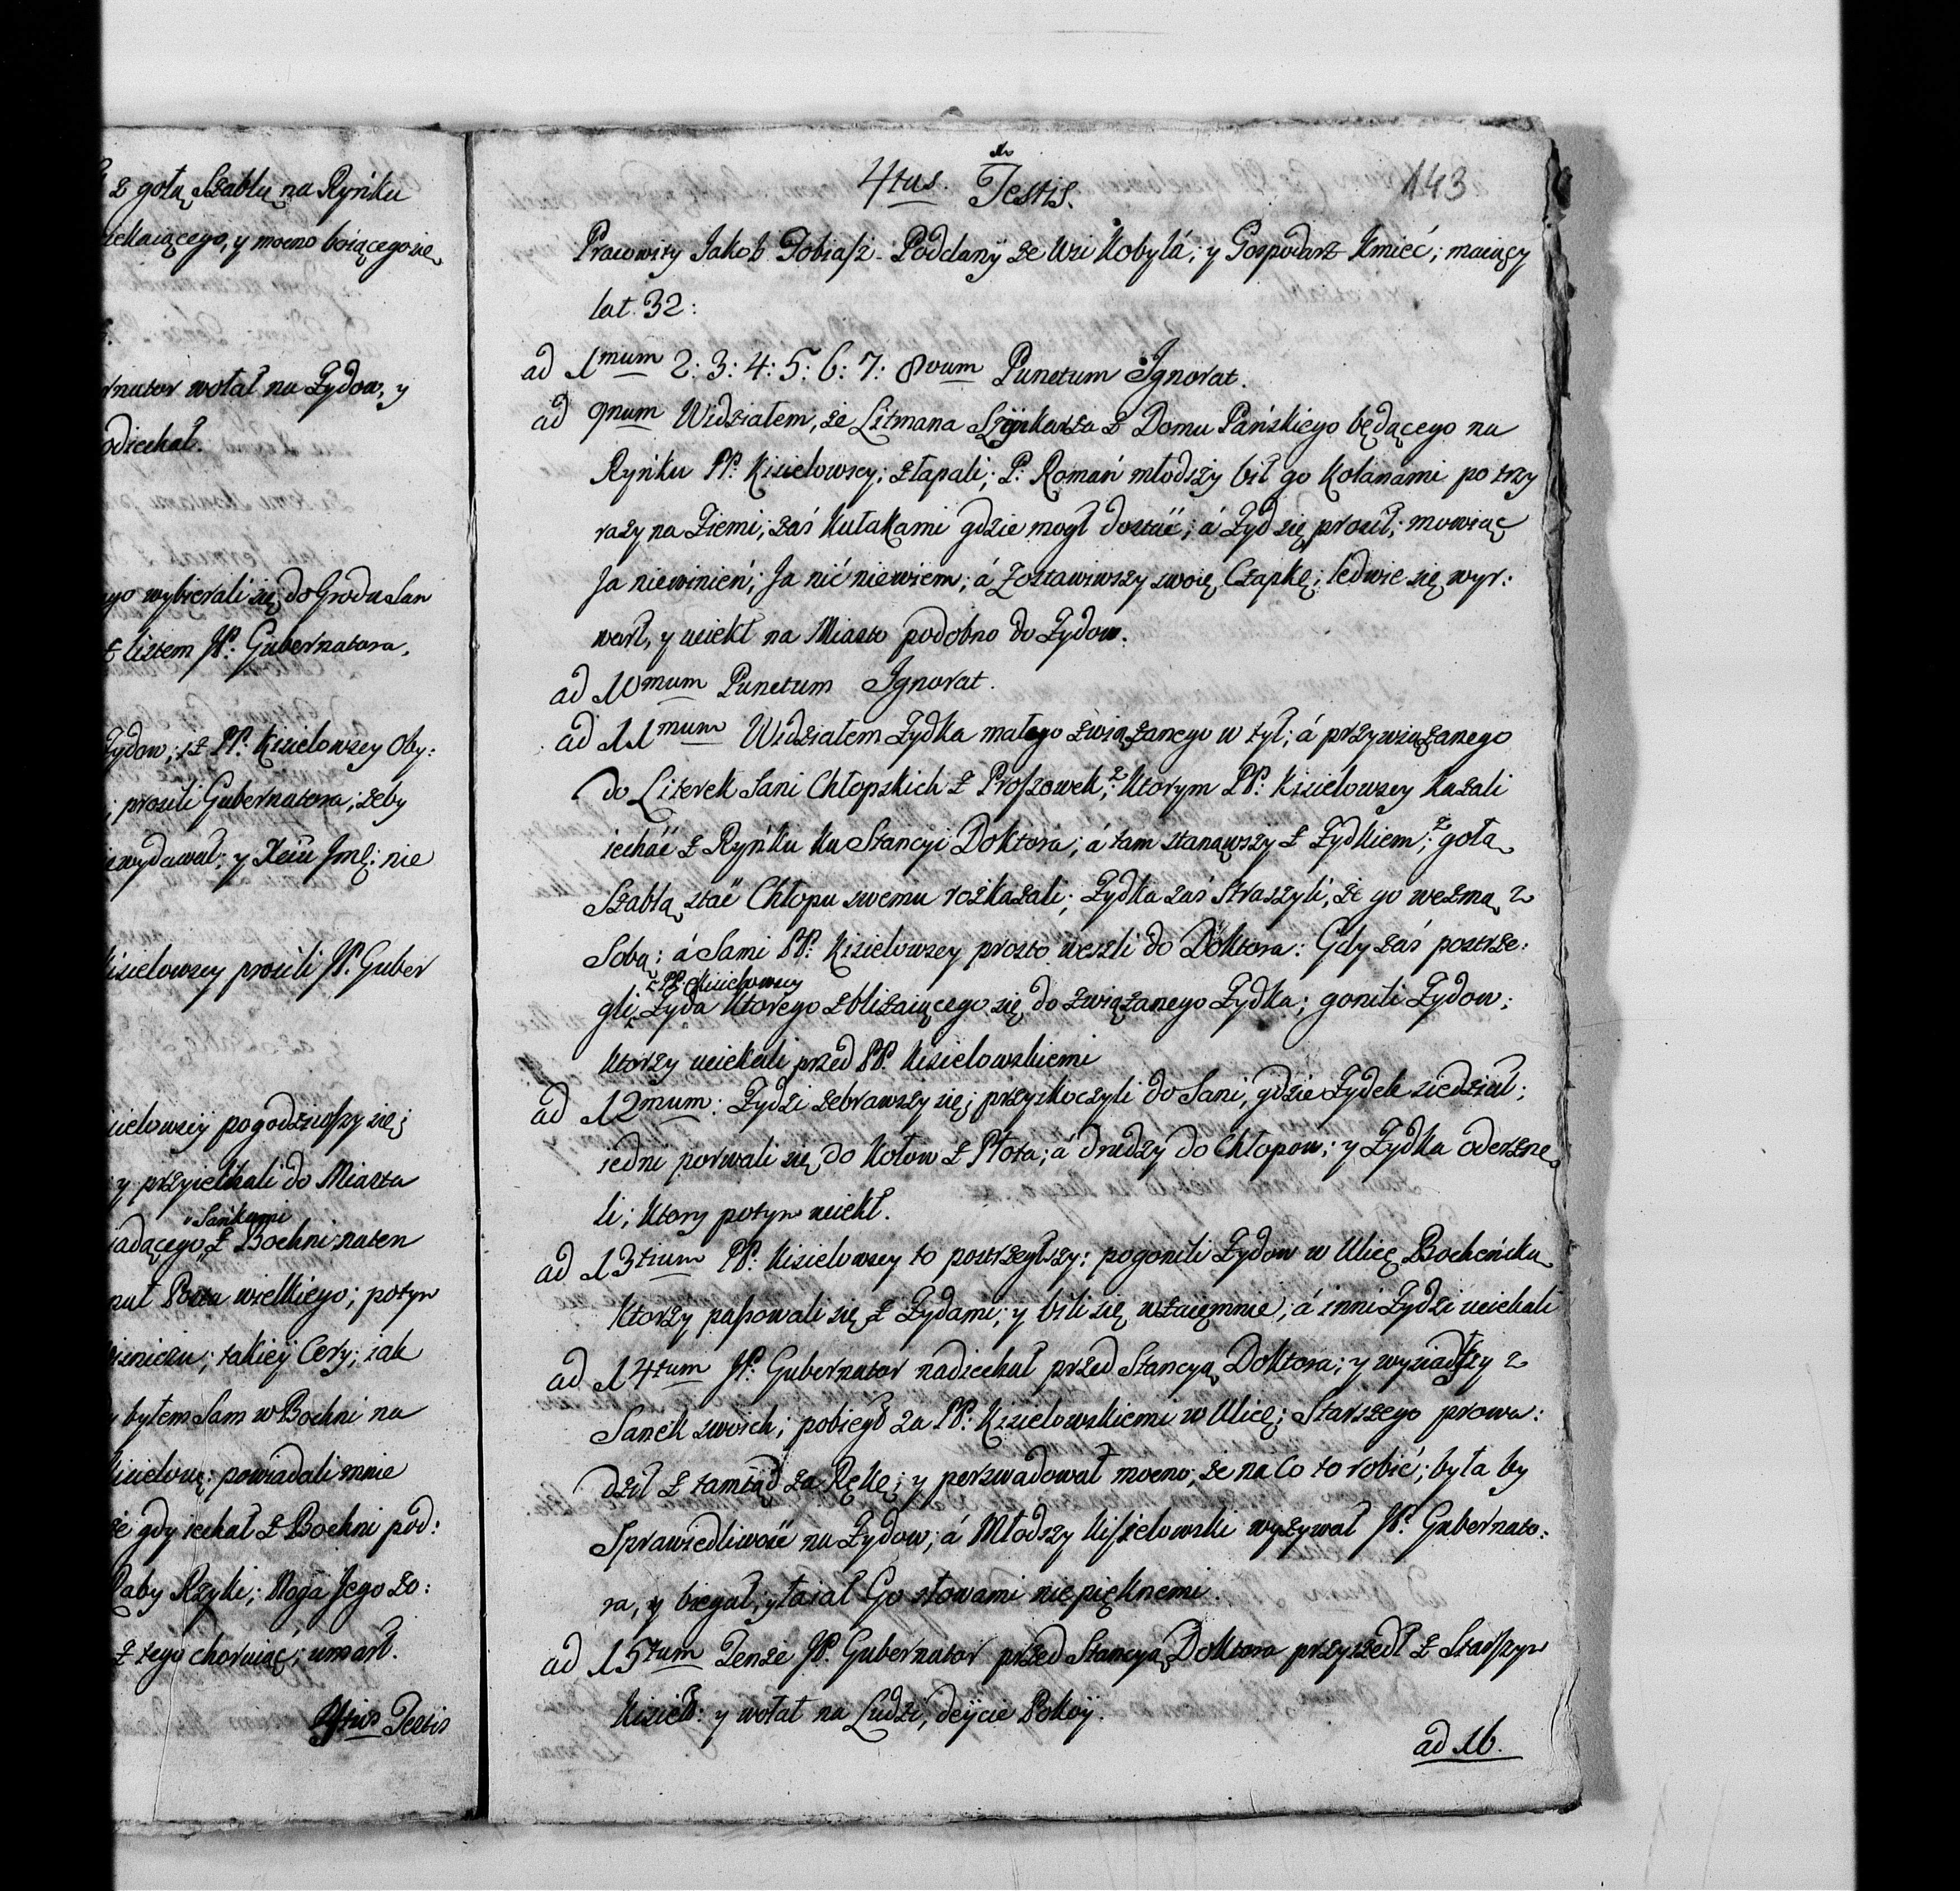 z gołą Szablą na Ryńku
uciekaiącego, y mocno boiącego się
rnator wołał na Żydow, y
odiechał.
go wybierali się do Grodu San
z listem JP: Gubernatora.
Żydow; iż PP: Kisielowscy Oby:
; prosili Gubernatora; żeby
wydawał; y Xciu Jmć: nie
Kisielowscy prosili JP: Guber
sielowscy pogodziwszy się;
y przyiechali do Miasta
Sankami
iadącego z Bochni naten
nał Posta wielkiego; potym
Wiśniczu; takiey Cery; iak
y byłem Sam w Bochni na
Kisielow: powiadali mnie
że gdy iechał z Bochni pod:
Raby Rzyki; Noga Jego zo:
z tego choruiąc; umarł.
4tus Testis
143
4tus. Testis.
Pracowity Jakob Tobiasz. Poddany ze Wsi Kobyla; y Gospodarz Kmieć; maiący
lat. 32:
ad 1mum 2: 3: 4: 5: 6: 7: 8vum Punctum Ignorat.
ad 9num Widziałem, że Litmana Szynkarza z Domu Pańskiego będącego na
Ryńku PP: Kisielowscy; złapali; P: Roman młodszy bił go kolanami po trzy
razy na Ziemi; zaś kułakami gdzie mogł dostać; á Żyd się prosił; mowiąc
Ja niewinień; Ja nić niewiem; á zostawiwszy swoię Czapkę; ledwie się wyr:
wał, y uciekł na Miasto podobno do Żydow.
ad 10mum Punctum Ignorat.
ad 11mum Widziałem Żydka małego związanego w tył; á przywiązanego
do Literek Sani Chłopskich z Proszowek; z ktorym PP: Kisielowscy kazali
iecháć z Ryńku ku Stancyi Doktora; á tam stanąwszy z Żydkiem; z gołą
Szablą stać Chłopu swemu rozkazali; Żydka zaś straszyli, że go wezmą z
Sobą: á Sami PP: Kisielowscy prosto weszli do Doktora: Gdy zaś postrze:
PP: Kisielowscy
gli Żyda ktorego zbliżaiącego się do związanego Żydka; gonili Żydow;
ktorzy uciekali przed PP. Kisielowskiemi
ad 12mum: Żydzi zebrawszy się; przyskoczyli do Sani, gdzie Żydek siedział;
iedni porwali się do kołow z Płota; á drudzy do Chłopow; y Żydka oderzne
li; ktory potym uciekł.
ad 13tium PP: Kisielowscy to postrzegłszy: pogonili Żydow w Ulicę Bocheńską
ktorzy passowali się z Żydami; y bili się wzaiemnie; á inni Żydzi uciekali
ad 14tum JP: Gubernator nadiechał przed Stancyą Doktora; y wysiadłszy z
Sanek swoich; pobiegł za PP: Kisielowskiemi w Ulicę; Starszego prowa:
dził z tamtąd za Rękę; y perswadował mocno; że na co to robić; była by
Sprawiedliwość na Żydow; á Młodszy Kisielowski wyzywał JP: Gubernato:
ra, y biegał; y łaiał Go słowami niepięknemi.
ad 15tum Tenże JP. Gubernator przed Stancyą Doktora przyszedł z Starszym
Kisiel: y wołał na Ludzi, deycie Pokoy.
ad 16.